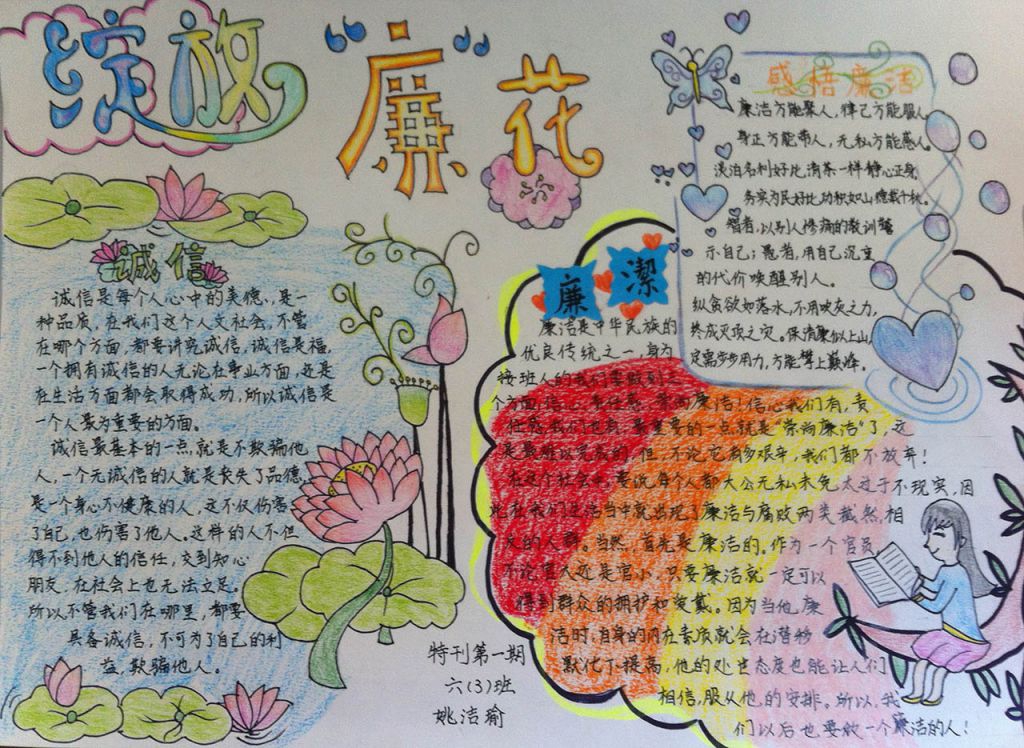 绽放“廉”花
诚信
诚信是每个人心中的美德，是一
种品质，在我们这个人文社会，不管
在哪个方面，都要讲究诚信，诚信是福，
一个拥有诚信的人无论在事业方面，还是
在生活方面都会取得成功，所以诚信是
一个人最为重要的方面。
诚信最基本的一点，就是不欺骗他
人，一个无诚信的人就是丧失了品德，
是一个身心不健康的人，这不仅伤害
了自己，也伤害了他人。这样的人不但
得不到他人的信任，交到知心
朋友，在社会上也无法立足。
所以不管我们在哪里，都要
具备诚信，不可为了自己的利
益，欺骗他人。
特刊第一期
六(3)班
姚洁瑜
感悟廉洁
廉洁方能聚人，律己方能服人，
身正方能带人，无私方能感人。
淡泊名利好比清茶一样静心正身，
务实为民好比功积如山德载千秋。
智者，以别人惨痛的教训警
示自己；愚者，用自己沉重
的代价唤醒别人。
纵贪欲如落水，不用吹灰之力，
终成灭顶之灾。保清廉似上山，
定需步步用力，方能攀上巅峰。
廉潔
廉洁是中华民族的
优良传统之一，身为
接班人的我们要做到三
个方面：信心、责任感、崇尚廉洁！信心我们有，责
任感我们也有，最重要的一点就是“崇尚廉洁”了，这
是最难以完成的，但，不论它有多艰辛，我们都不放弃！
在这个社会中，要说每个人都大公无私未免太过于不现实，因
此在我们生活当中就出现了廉洁与腐败两类截然相
反的人群。当然，首先是廉洁的。作为一个官员，
不论官大还是官小，只要廉洁就一定可以
得到群众的拥护和爱戴。因为当他，廉
洁时，自身的内在素质就会在潜移
默化下提高，他的处世态度也能让人们
相信，服从他，的安排。所以，我
们以后也要做一个廉洁的人！